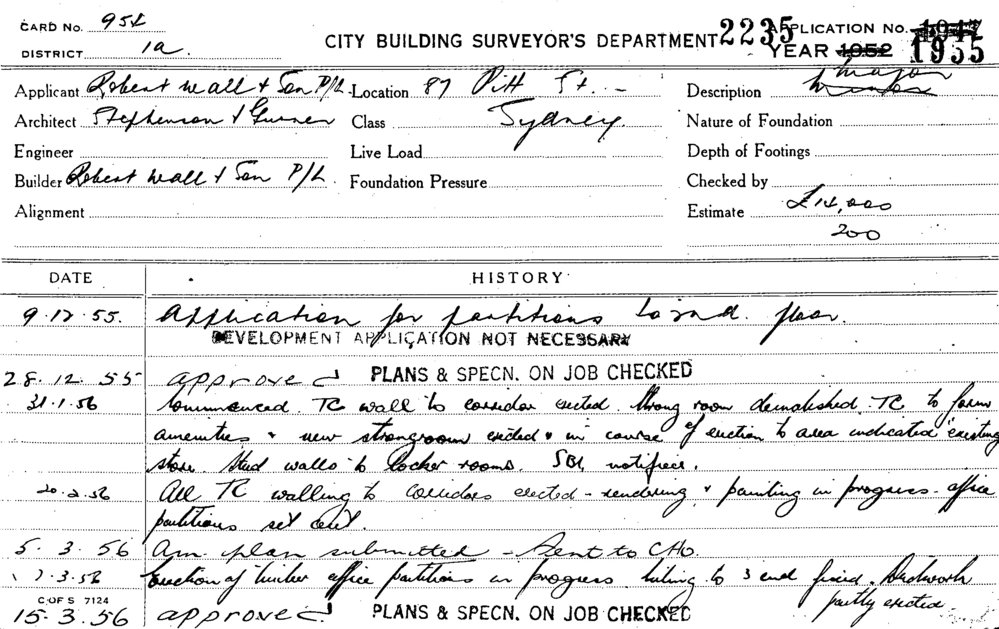 CARD No. 954
DISTRICT 1a
CITY BUILDING SURVEYOR'S DEPARTMENT
2235
APPLICATION No. 1947
YEAR 1952 1955
Applicant Robert Wall & Son P/L Location 87 Pitt St. Description Major Minor
Architect Stephenson & Turner Class Sydney. Nature of Foundation
Engineer Live Load Depth of Footings
Builder Robert Wall & Son P/L Foundation Pressure Checked by
Alignment Estimate £14,000
200
DATE HISTORY
9.12.55. Application for partitions to 2nd. floor.
DEVELOPMENT APPLICATION NOT NECESSARY
28.12.55 approved PLANS & SPECN. ON JOB CHECKED
31.1.56 Commenced. TC wall to corridor erected. Strong room demolished. TC to form
amenities & new strongroom erected & in course of erection to area indicated "existing
store. Stud walls to locker rooms. SBI notified.
20.2.56 All TC walling to corridors erected - rendering & painting in progress - office
partitions set out.
5.3.56 Am. plan submitted - Sent to CHO.
7.3.56 Erection of timber office partitions in progress to 3 end fixed. Ductwork
partly erected.
C OF S 7124
15.3.56 approved PLANS & SPECN. ON JOB CHECKED